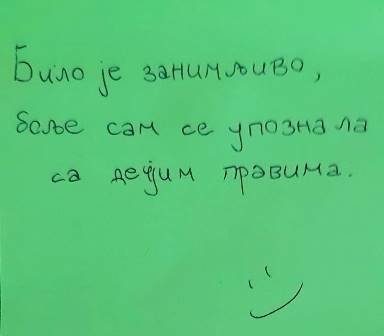 Било је занимљиво,
боље сам се упознала
са дечјим правима.